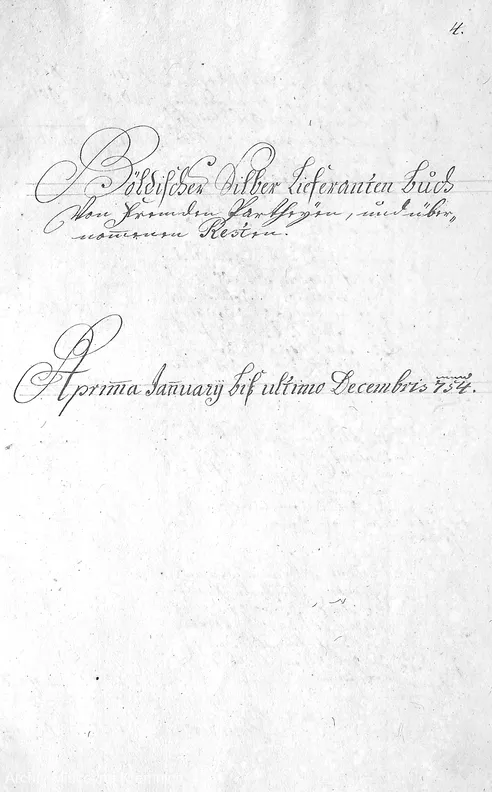 4.
Böldischer Silber Lieferanten Buch
Von Fremden Partheyen, und über„
nom̅enen Resten.
A prim̅a Jan̅uarÿ biß ultimo Decembris 754.